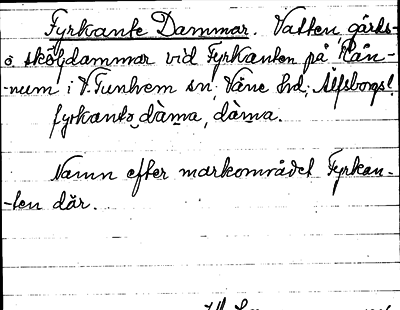 Fyrkante Dammar. Vatten gårds-
o sköljdammar vid Fyrkanten på Rån-
-num i V. Tunhem sn; Väne hd; Älfsborgs l.
fyrkantɵ dàma, dàma.
Namn efter markområdet Fyrkan-
-ten där.